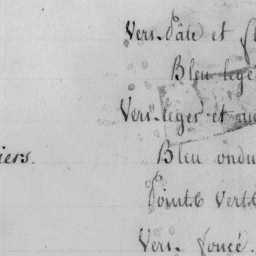 Vers. Pâle et
Bleu lege
Vers. leger et
iers.
Bleu ondu
Pointe Verte
Vers. foncé.